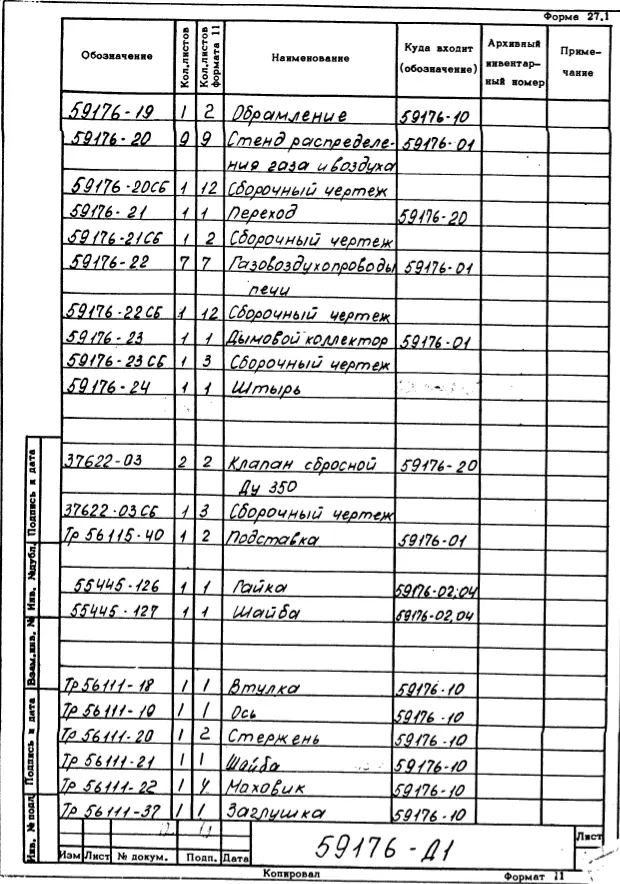 Форма 27.1
Обозначение Кол.листов Кол.листов формата 11 Наименование Куда входит (обозначение) Архивный инвентарный номер Примечание
59176-19 1 2 Обрамление 59176-10
59176-20 9 9 Стенд распределе- 59176-01
ния газа и воздуха
59176-20СБ 1 12 Сборочный чертеж
59176-21 1 1 Переход 59176-20
59176-21СБ 1 2 Сборочный чертеж
59176-22 7 7 Газовоздухопроводы 59176-01
печи
59176-22СБ 1 12 Сборочный чертеж
59176-23 1 1 Дымовой коллектор 59176-01
59176-23СБ 1 3 Сборочный чертеж
59176-24 1 1 Штырь
37622-03 2 2 Клапан сбросной 59176-20
Ду 350
37622-03СБ 1 3 Сборочный чертеж
Тр 56115-40 1 2 Подставка 59176-01
55445-126 1 1 Гайка 59176-02;04
55445-127 1 1 Шайба 59176-02,04
Тр 56111-18 1 1 Втулка 59176-10
Тр 56111-19 1 1 Ось 59176-10
Тр 56111-20 1 2 Стержень 59176-10
Тр 56111-21 1 1 Шайба 59176-10
Тр 56111-22 1 4 Маховик 59176-10
Тр 56111-37 1 1 Заглушка 59176-10
Подпись и дата
Инв. №дубл.
Взам.инв. №
Подпись и дата
Инв. № подл.
59176-Д1
Лист
Изм Лист № докум. Подп. Дата
Копировал Формат 11